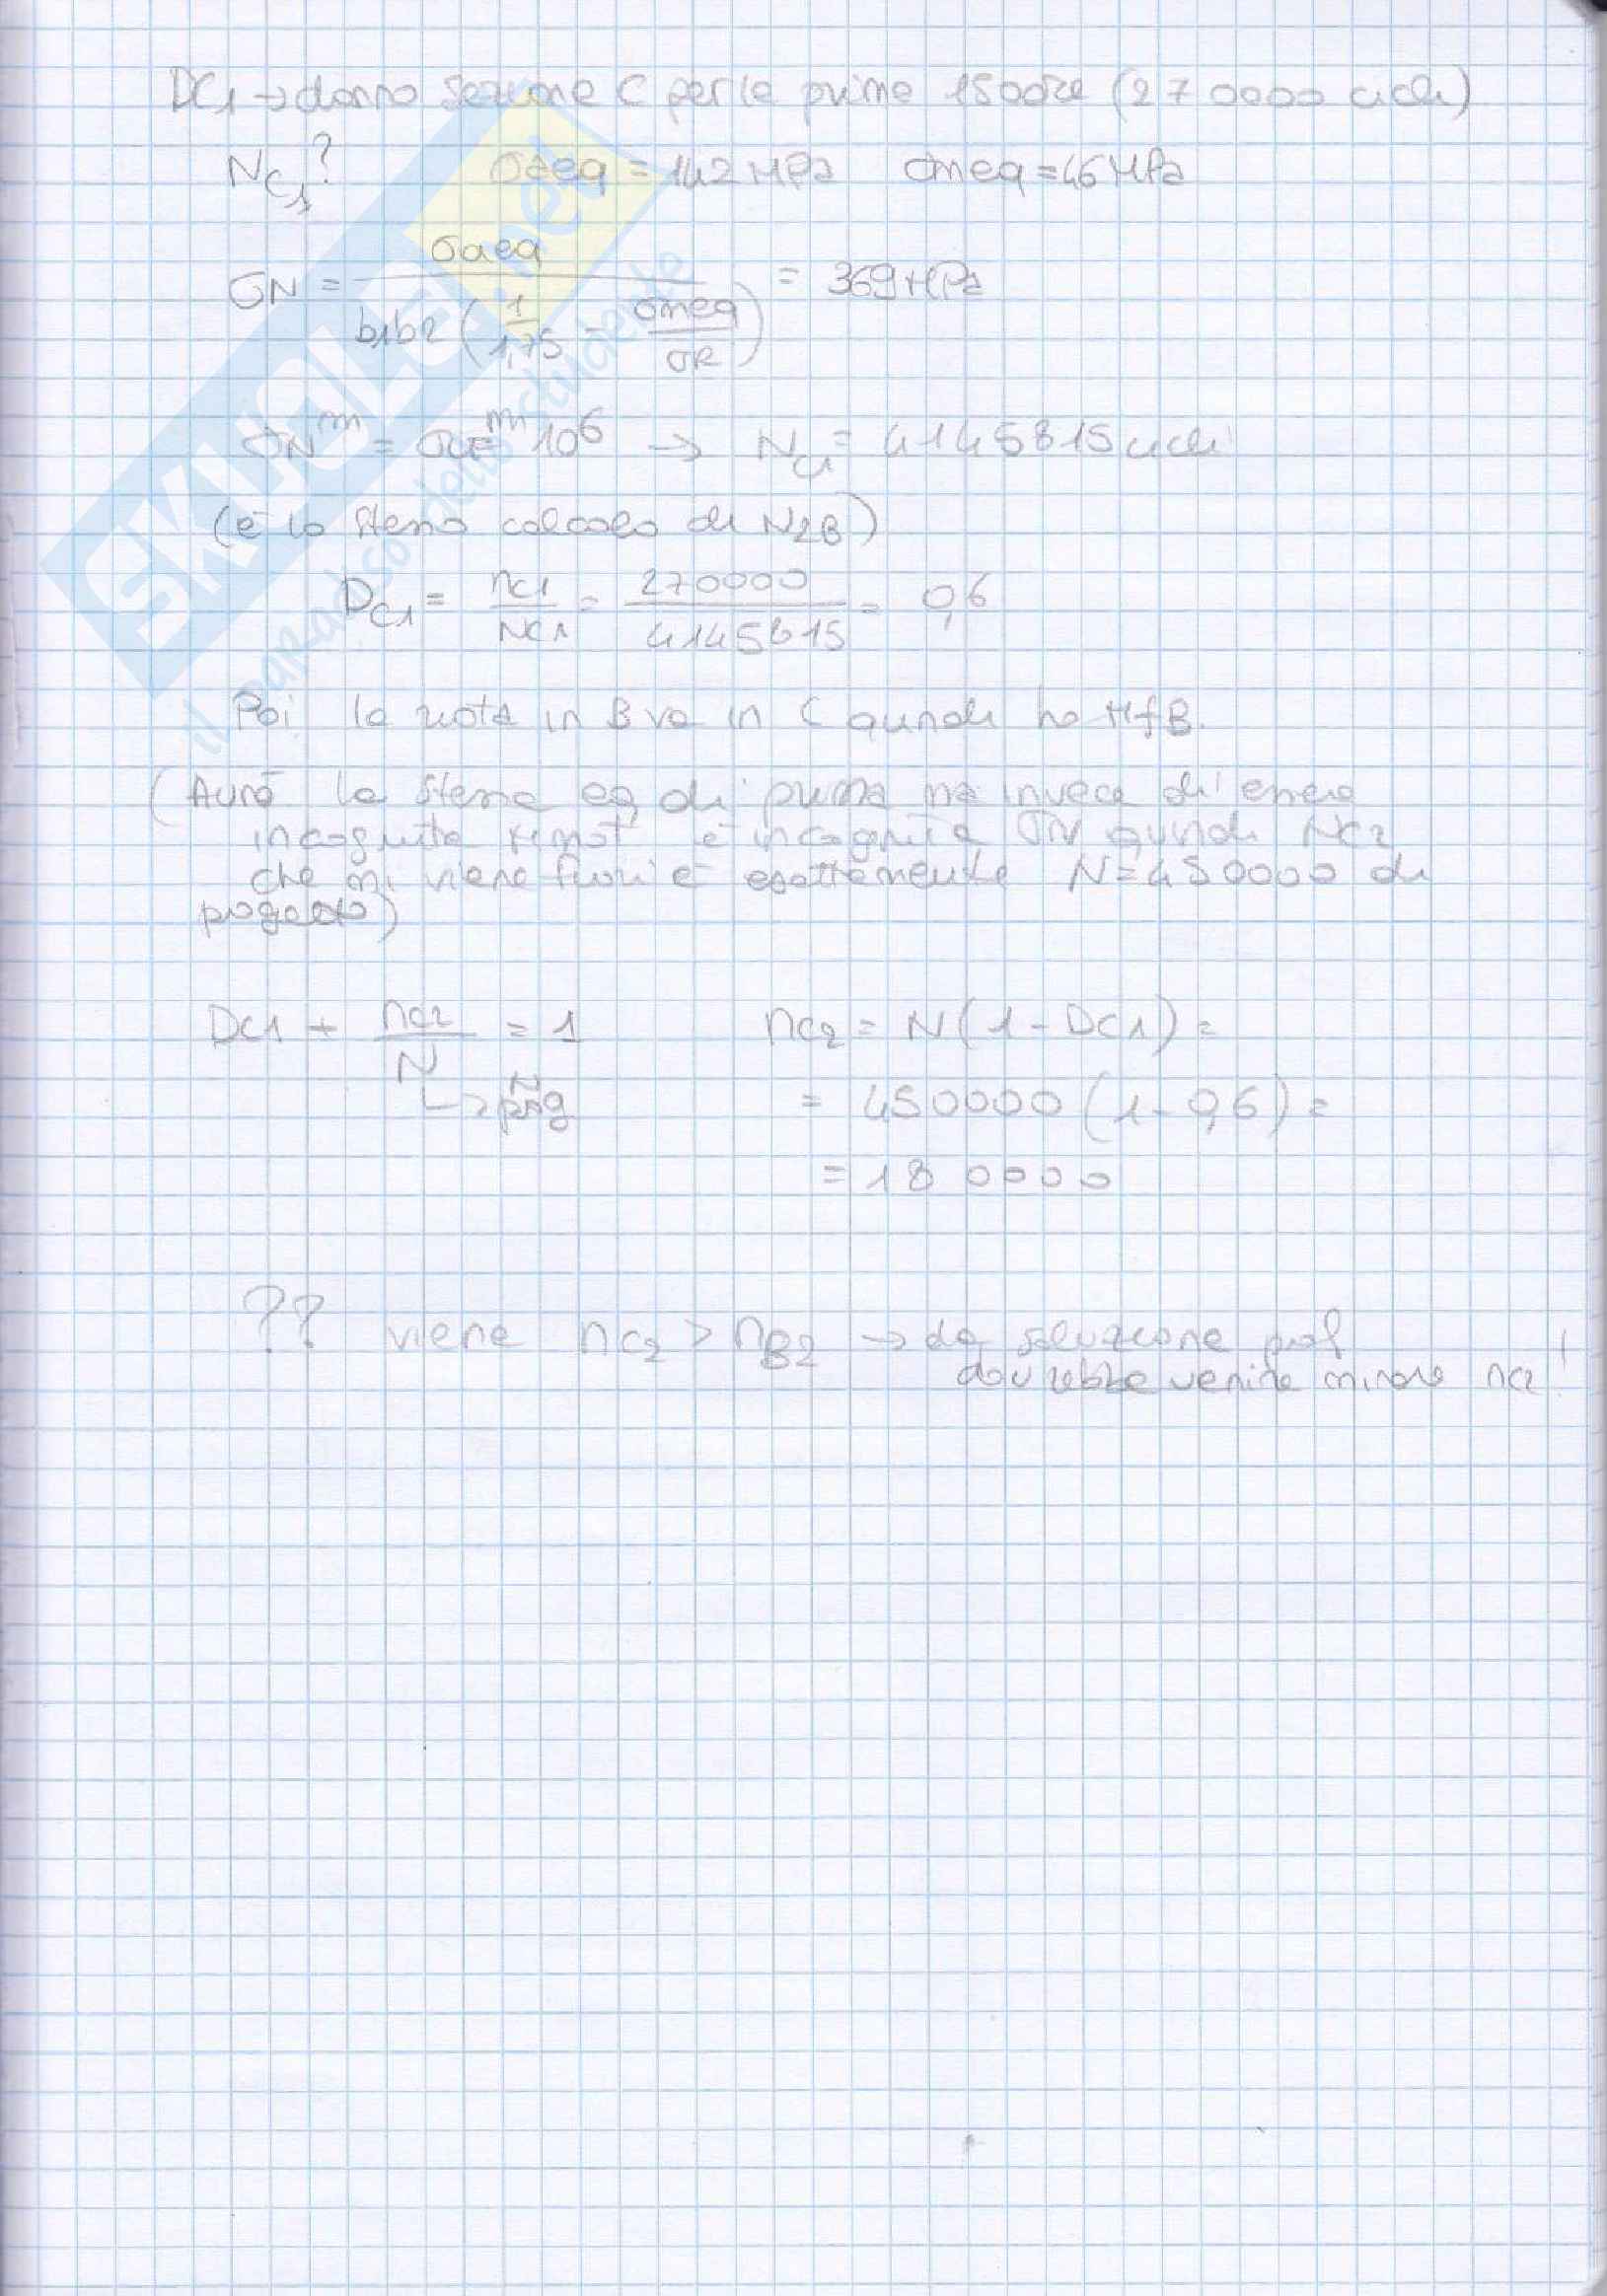 DC1 → danno sezione C per le prime 1500 ore (270000 cicli)
NC1? σaeq = 142 MPa σmeq = 46 MPa
σN = σaeq / b1b2 (1/1,75 - σmeq/σR) = 369 MPa
σN^m = σLF^m 10^6 → NC1 = 4145815 cicli
(è lo stesso calcolo di N2B)
DC1 = nC1/NC1 = 270000/4145815 = 0,6
Poi la ruota in B va in C quindi ho MfB.
(Avrò la stessa eq di prima ma invece di essere
incognita Mmot è incognita σN quindi NC2
che mi viene fuori è esattamente N=450000 di
progetto)
DC1 + nC2/N = 1 nC2 = N(1-DC1) =
↳ prog = 450000 (1-0,6) =
= 180000
?? viene nC2 > nB2 → da soluzione prof
dovrebbe venire minore nC2!
SKUOLA.net
il paradiso dello studente